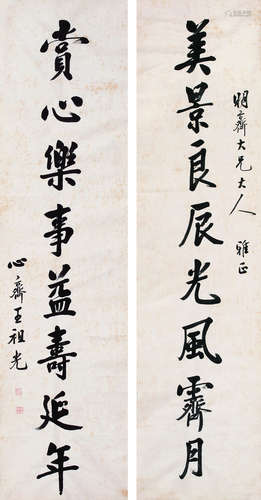 明齋大兄大人 雅正
美景良辰光風霽月
賞心樂事益壽延年
心齋王祖光